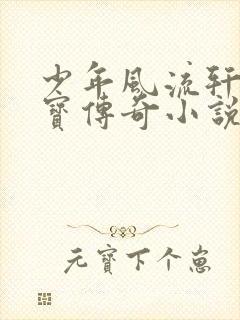 少年風流轩
寳傳奇小說
元寳下个崽